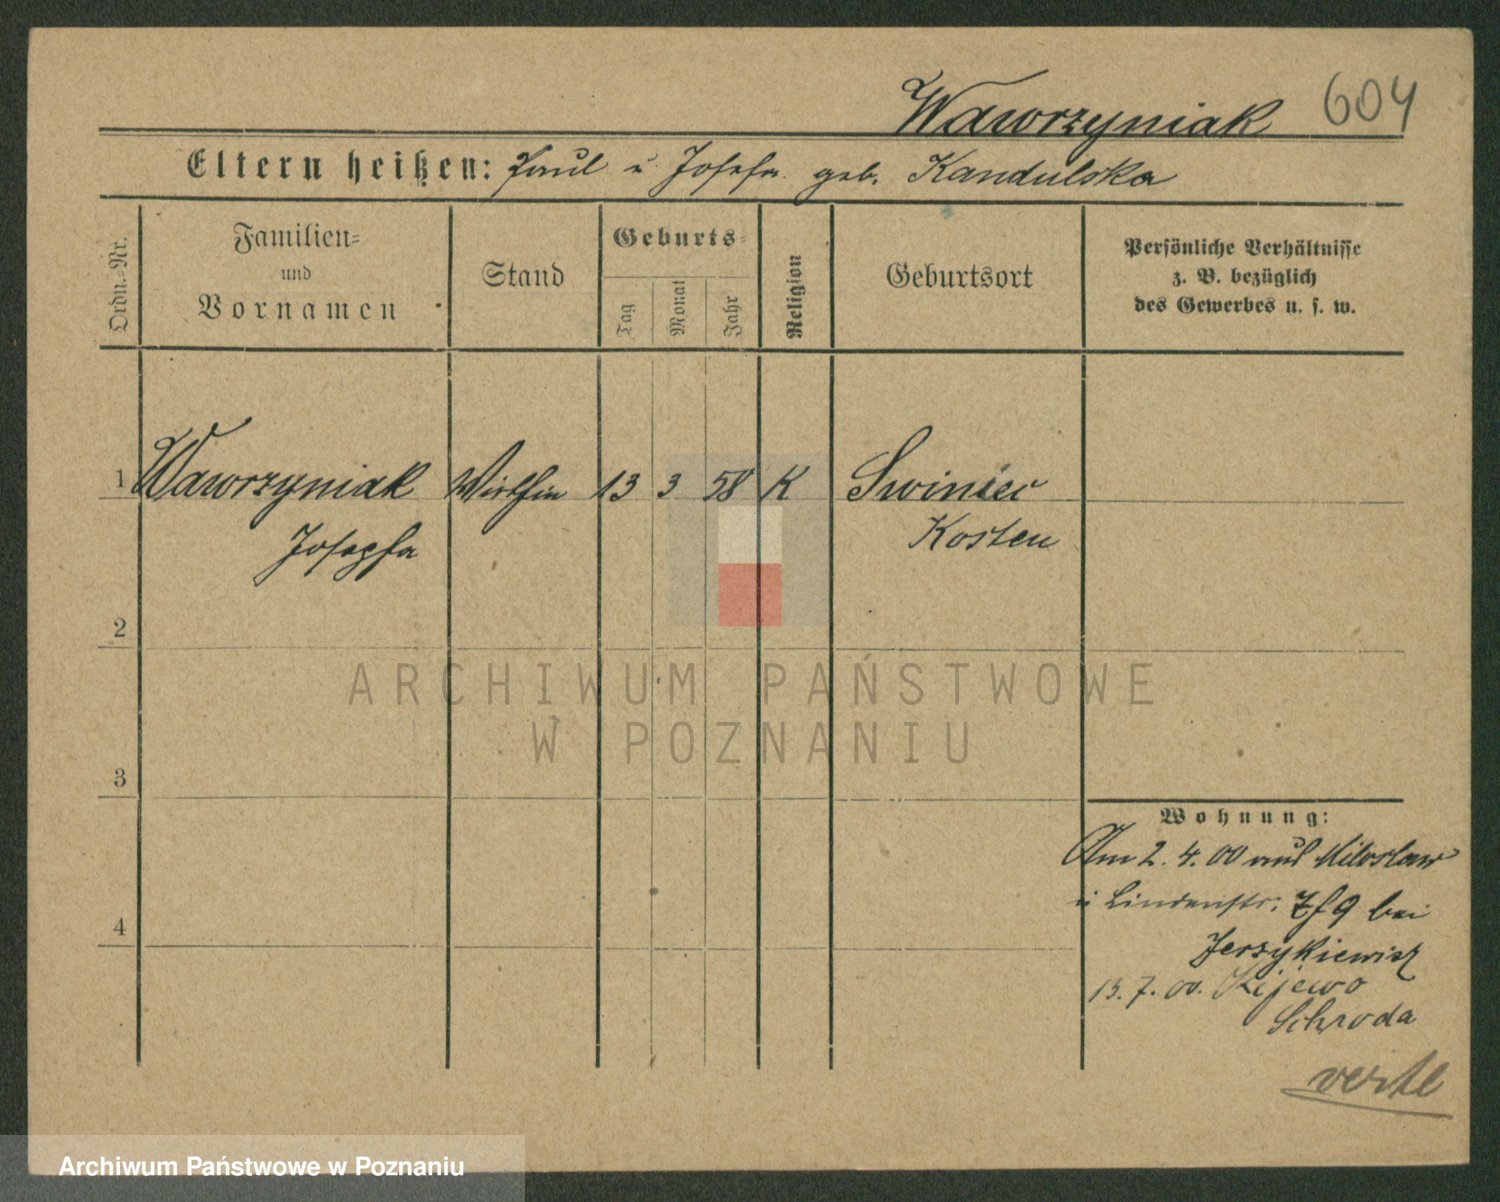 Wawrzyniak 604
Eltern heißen: Paul u. Josefa geb. Kandulska
Ordn.-Nr.
Familien=
und
Vornamen
Stand
Geburts=
Tag
Monat
Jahr
Religion
Geburtsort
Persönliche Verhältnisse
z. B. bezüglich
des Gewerbes u. s. w.
1 Wawrzyniak Wirthin 13 3 58 K Swiniec
Josepha Kosten
2
ARCHIWUM PAŃSTWOWE
W POZNANIU
3
Wohnung:
Am 2. 4. 00 aus Miloslaw
Lindenstr. 9 bei
Jerzykiewicz
13. 7. 00. Kijewo
Schroda
4
verte
Archiwum Państwowe w Poznaniu